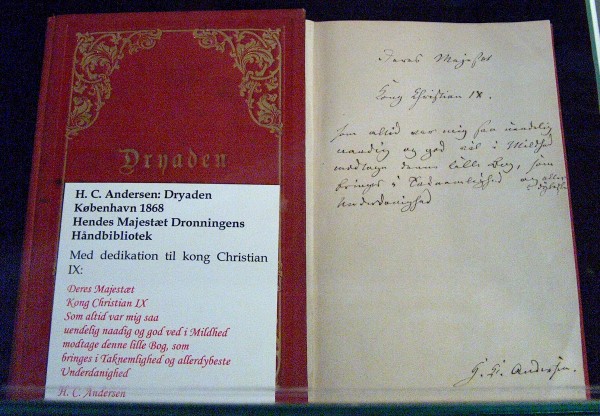 Dryaden
H. C. Andersen: Dryaden
København 1868
Hendes Majestæt Dronningens
Håndbibliotek
Med dedikation til kong Christian
IX:
Deres Majestæt
Kong Christian IX
Som altid var mig saa
uendelig naadig og god ved i Mildhed
modtage denne lille Bog, som
bringes i Taknemlighed og allerdybeste
Underdanighed
H. C. Andersen
Deres Majestæt
Kong Christian IX.
Som altid var mig saa uendelig
naadig og god vil i Mildhed
modtage denne lille Bog, som
bringes i Taknemlighed og aller-
dybeste
Underdanighed
H. C. Andersen.